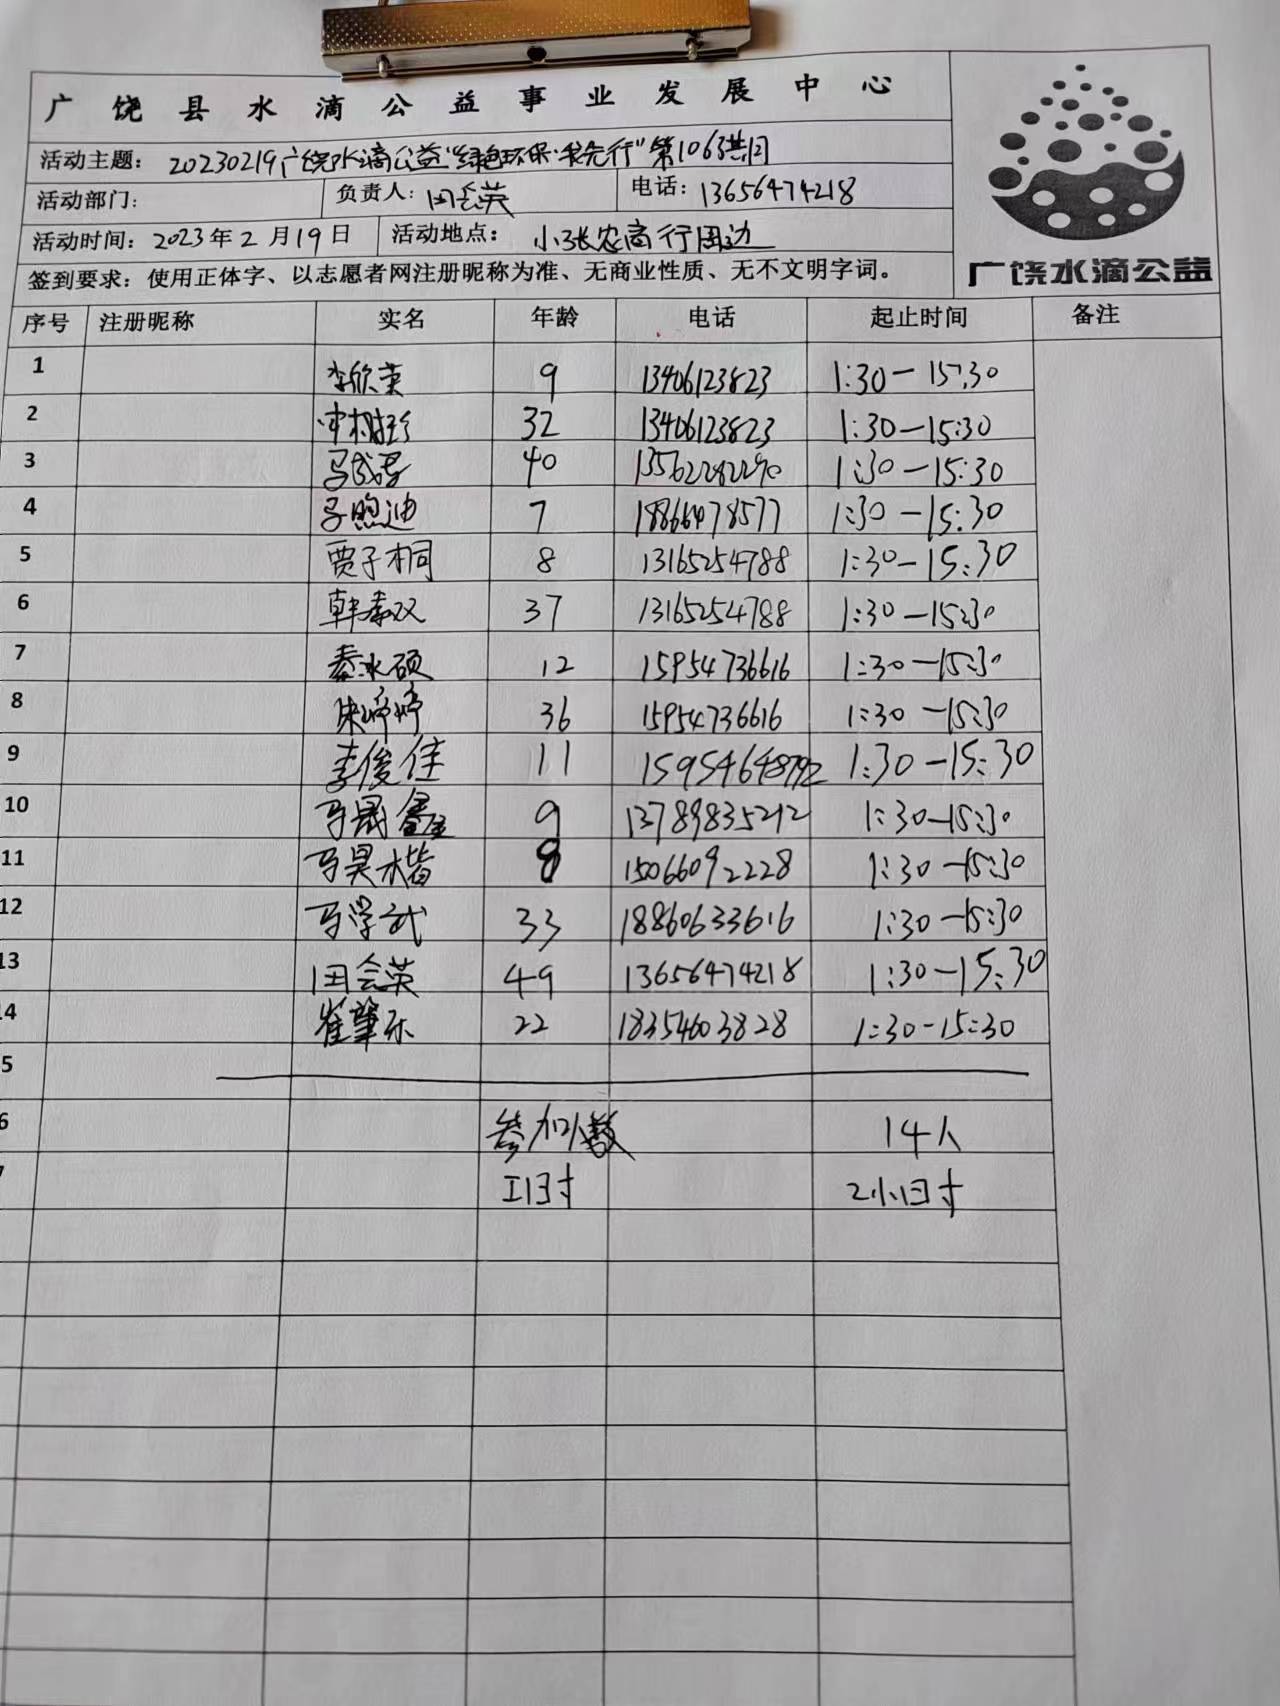 广饶县水滴公益事业发展中心
活动主题：20230219广饶水滴公益“绿色环保·我先行”第1063期
活动部门： 负责人：田会英 电话：13656474218
活动时间：2023年2月19日 活动地点：小张农商行周边
签到要求：使用正体字、以志愿者网注册昵称为准、无商业性质、无不文明字词。
广饶水滴公益
序号 注册昵称 实名 年龄 电话 起止时间 备注
1 李欣 9 13406123823 1:30—15:30
2 32 13406123823 1:30—15:30
3 40 13562282290 1:30—15:30
4 7 18866478577 1:30—15:30
5 贾子桐 8 13165254788 1:30—15:30
6 韩春双 37 13165254788 1:30—15:30
7 秦冰硕 12 15954736616 1:30—15:30
8 朱婷婷 36 15954736616 1:30—15:30
9 李俊佳 11 1:30—15:30
10 马晟鑫 9 13789835212 1:30—15:30
11 马昊楷 8 15066092228 1:30—15:30
12 马学武 33 18860633616 1:30—15:30
13 田会英 49 13656474218 1:30—15:30
14 崔肇乐 22 18354603828 1:30-15:30
5
6 参加人数 14人
7 工时 2小时